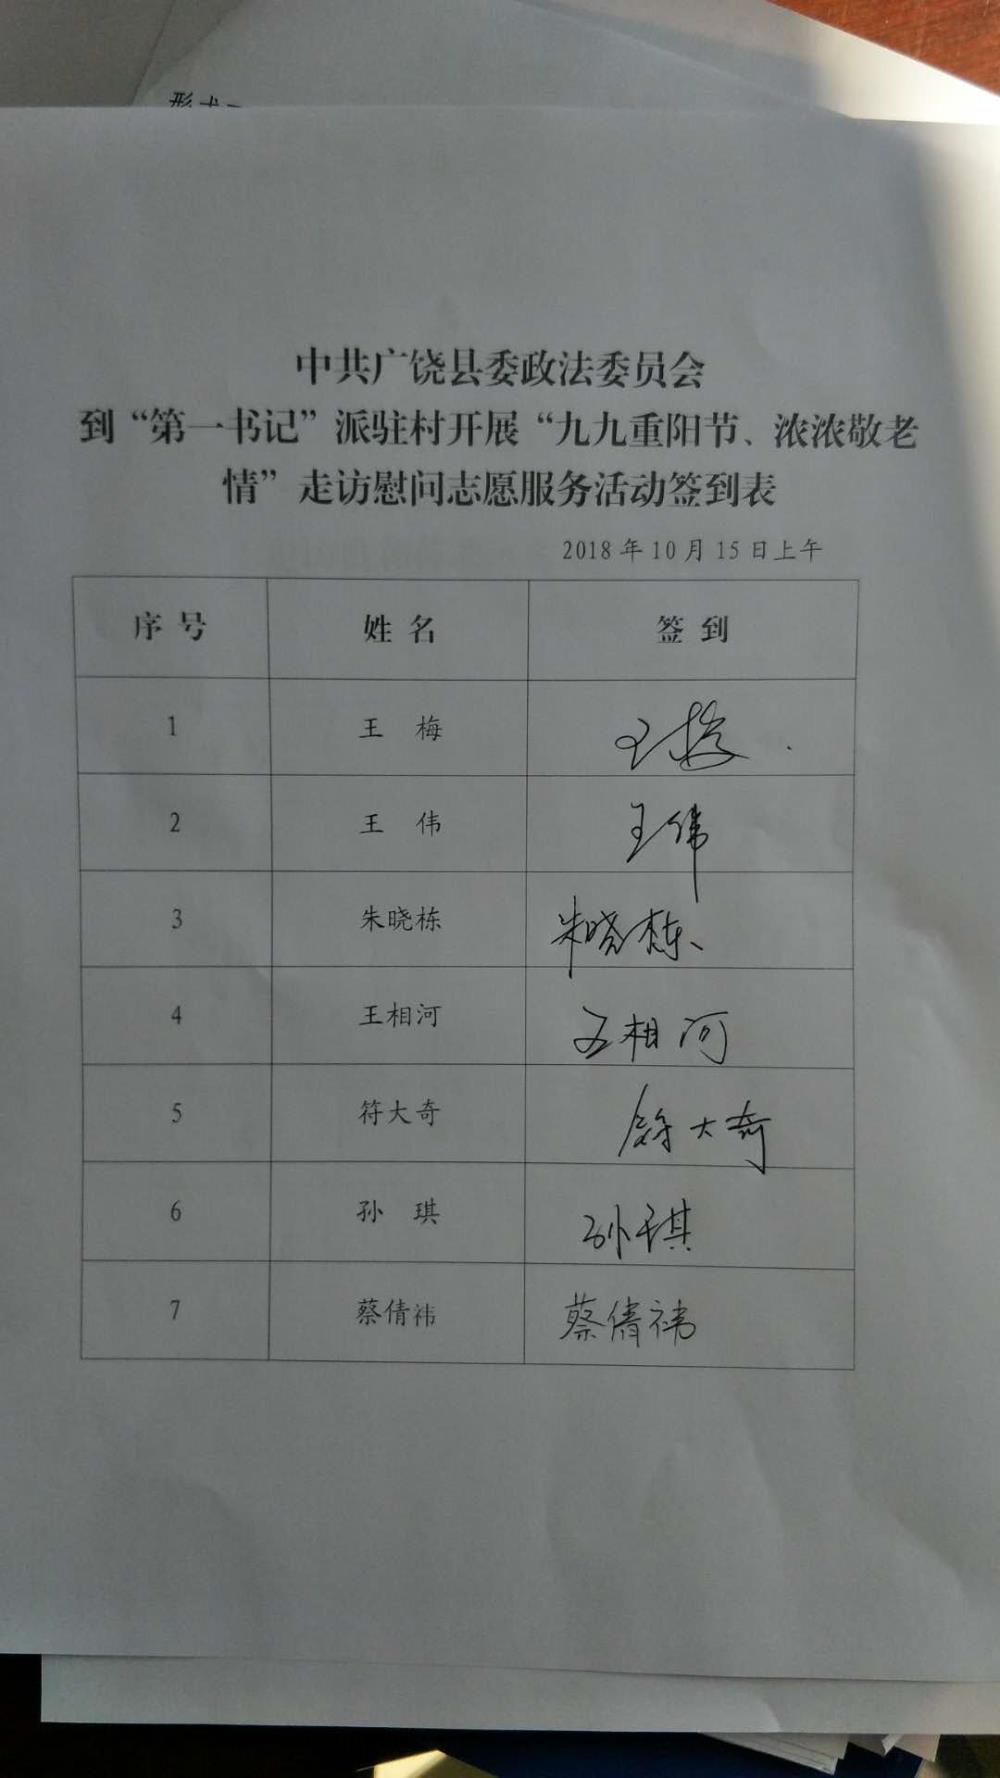 中共广饶县委政法委员会
到“第一书记”派驻村开展“九九重阳节、浓浓敬老
情”走访慰问志愿服务活动签到表
2018年10月15日上午
序号 姓名 签到
1 王梅 王梅
2 王伟 王伟
3 朱晓栋 朱晓栋
4 王相河 王相河
5 符大奇 符大奇
6 孙琪 孙琪
7 蔡倩祎 蔡倩祎